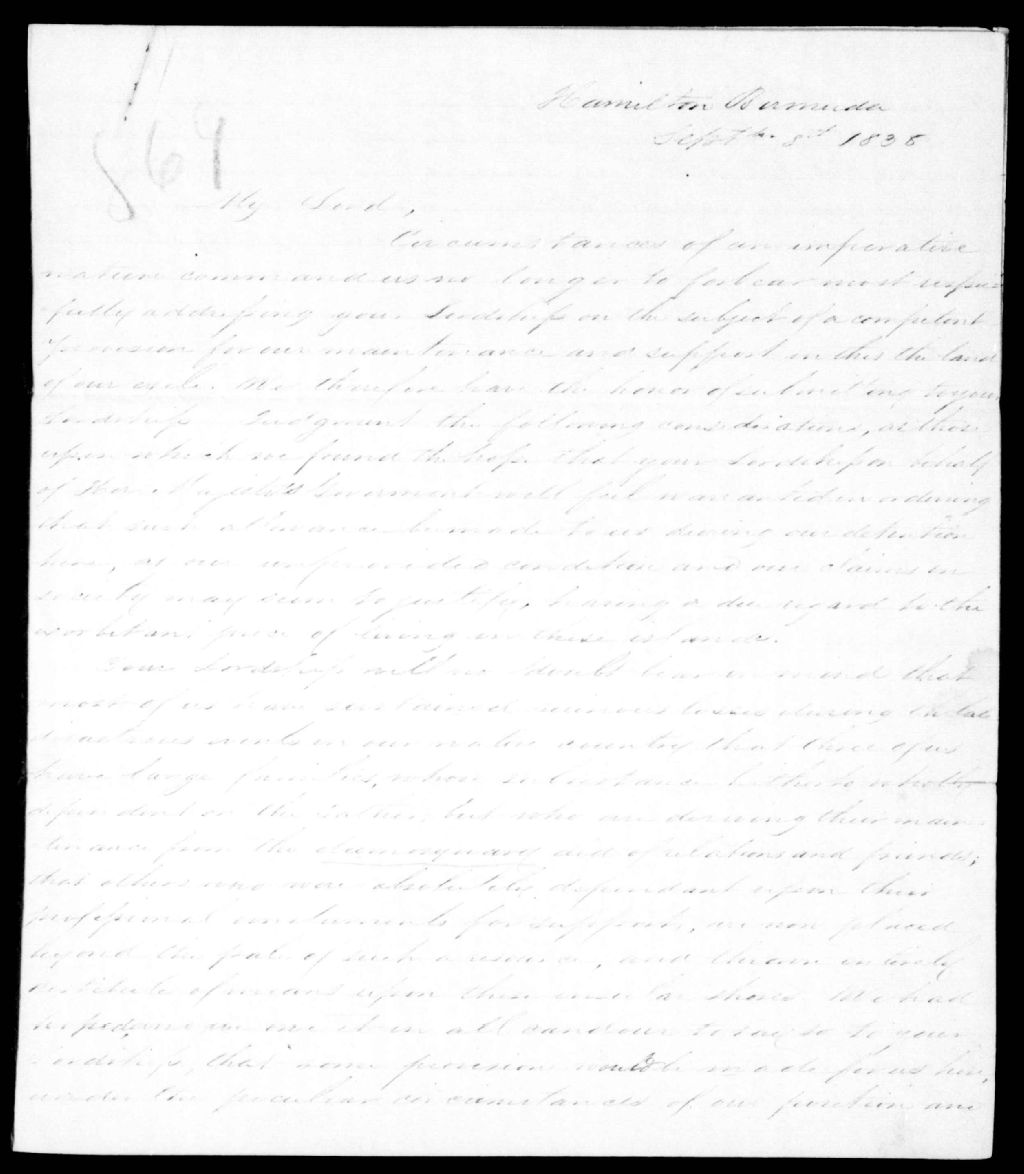 864
Hamilton Bermuda
Septbr 8th 1838
My Lord,
Circumstances of an imperative
nature command us no longer to forbear most respect
fully addressing your Lordship on the subject of a competent
provision for our maintenance and support in this the land
of our exile. We therefore have the honor of submitting to your
Lordship's Judgment the following considerations, as those
upon which we found the hope that your Lordship on behalf
of Her Majesty's Government will feel warranted in ordering
that such allowance be made to us during our detention
here, as our unprovided condition and our claims in
society may seem to justify, having a due regard to the
exorbitant price of living in these islands.
Your Lordship will no doubt bear in mind that
most of us have sustained ruinous losses during the late
disastrous events in our native country that three of us
have large families, whose subsistance hitherto wholly
dependent on the father, but who are deriving their main
tenance from the eleemosynary aid of relations and friends;
that others who were absolutely dependant upon their
professional emoluments for support, are now placed
beyond the pale of such a resource, and thrown entirely
destitute of means upon these insular shores. We had
hoped, and we own it in all candour to say so to your
Lordship, that some provision would be made for us here,
under the peculiar circumstances of our position and